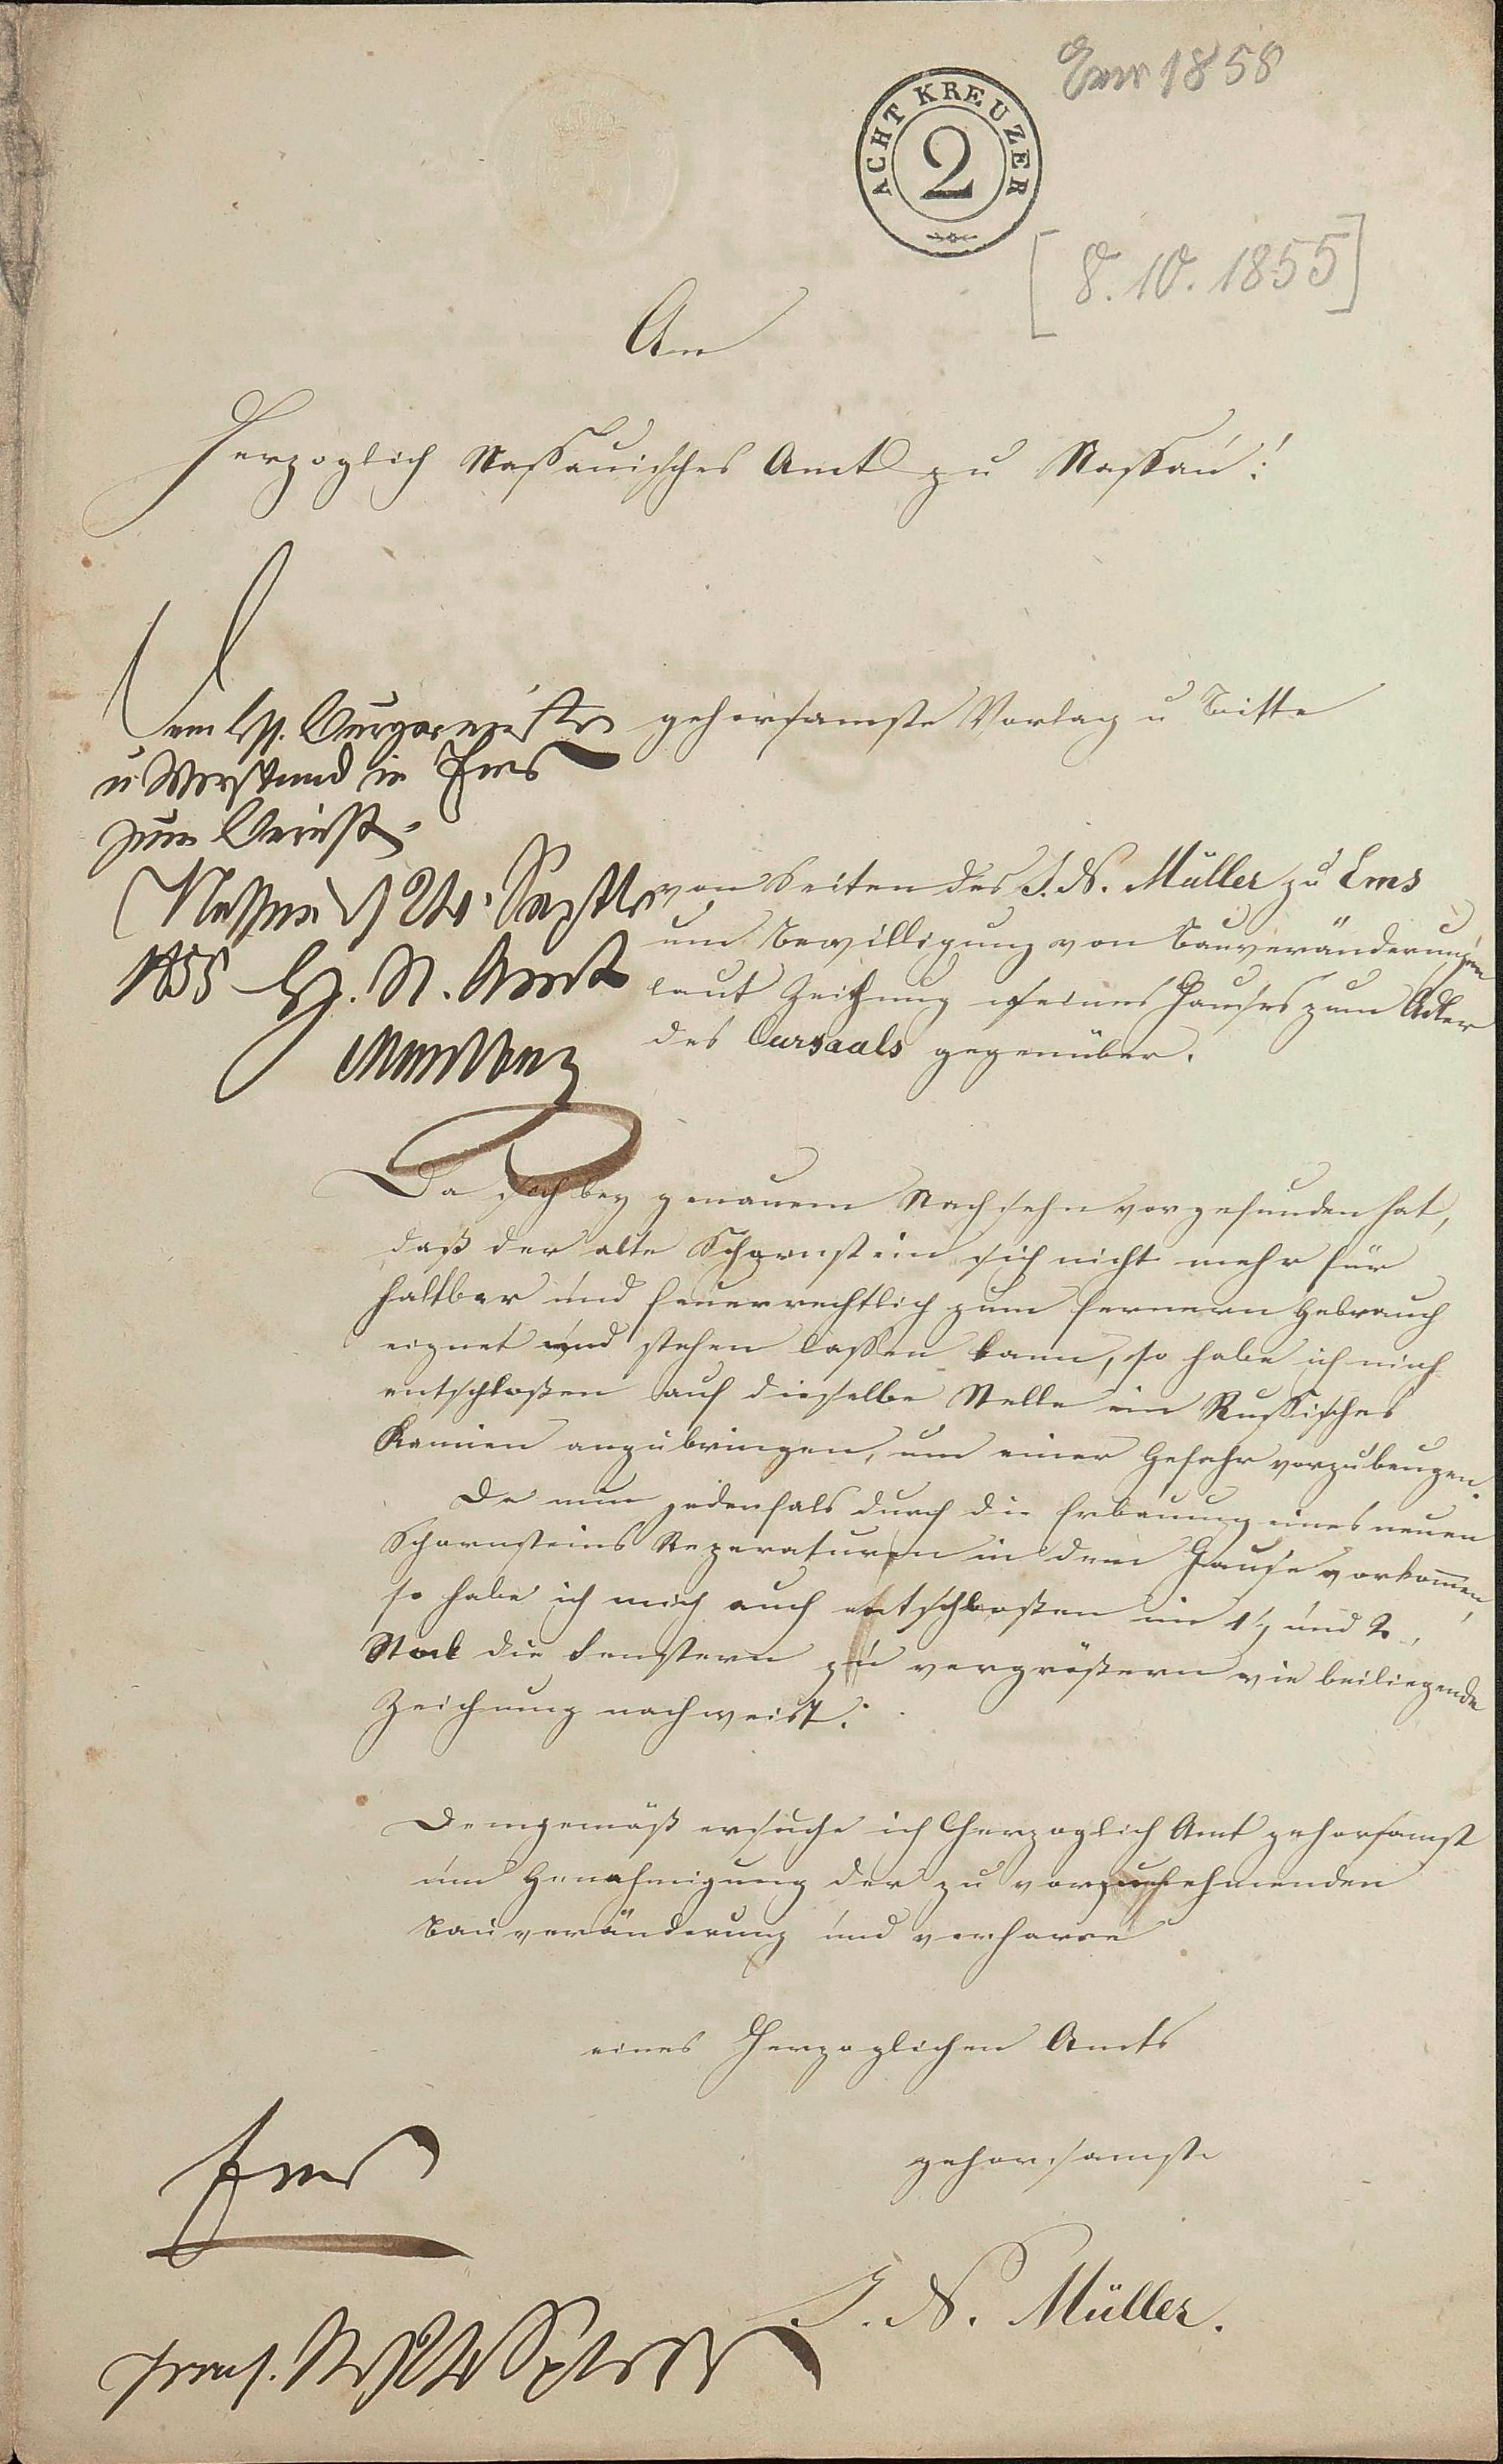 Ems 1858
ACHT KREUZER
2
[8.10.1855]
An
Herzoglich Nassauisches Amt zu Nassau!
gehorsamste Vorlag u Bitte
dem Bürgermeister
u Vorstand in Ems
zum Bericht.
Nassau d 24. Septbr
1855 Hz. N. Amt
von Seiten des J. N. Müller zu Ems
um Bewilligung von Bauveränderungen
laut Zeichnung seines Hauses zum Adler
des Cursaals gegenüber.
Da sich bey genauem Nachsehn vorgefunden hat,
daß der alte Schornstein sich nicht mehr für
haltbar und feuerrechtlich zum fernern Gebrauch
eignet und stehen lassen kann, so habe ich mich
entschloßen auf dieselbe Stelle ein Russisches
Kamien anzubringen, um einer Gefahr vorzubeugen.
Da nun jedenfals durch die Erbauung eines neuen
Schornsteins Reparaturen in dem Hause vorkom̅en,
so habe ich mich auch entschloßen im 1t und 2t
Stock die Fenstern zu vergrößern wie beiliegende
Zeichnung nachweist.
Demgemäß ersuche ich Herzoglich Amt gehorsamst
um Genehmigung der zu vorzunehmenden
Bauveränderung und verharre
eines Herzoglichen Amts
gehorsamste
Ems
J. N. Müller.
praes. N. d 24 Sptr 55